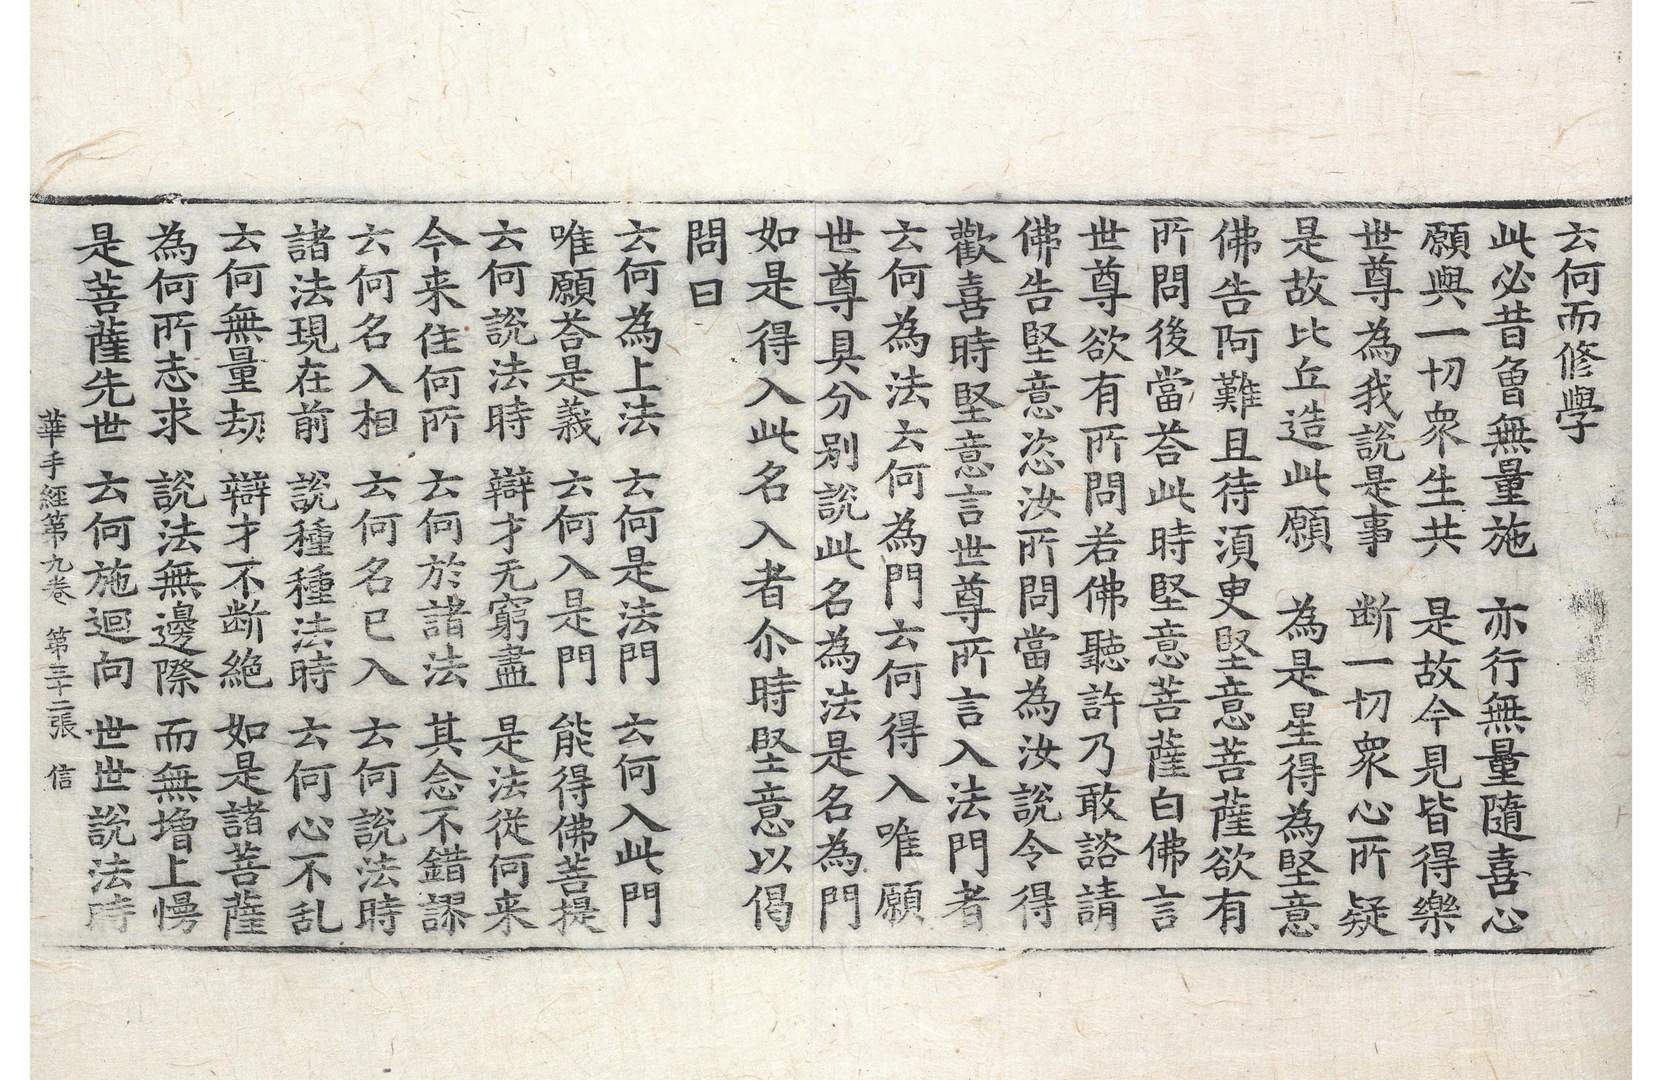 云何而修學
此必昔曾無量施　亦行無量隨喜心
願與一切衆生共　是故今見皆得樂
世尊為我說是事　断一切衆心所疑
是故比丘造此願　為是星得為堅意
佛告阿難且待湏臾堅意菩薩欲有
所問後當荅此時堅意菩薩白佛言
世尊欲有所問若佛聽許乃敢諮請
佛告堅意恣汝所問當為汝說令得
歡喜時堅意言世尊所言入法門者
云何為法云何為門云何得入唯願
世尊具分別說此名為法是名為門
如是得入此名入者尒時堅意以偈
問曰
云何為上法　云何是法門　云何入此門
唯願荅是義　云何入是門　能得佛菩提
云何說法時　辯才无窮盡　是法從何来
今来住何所　云何於諸法　其念不錯謬
云何名入相　云何名已入　云何說法時
諸法現在前　說種種法時　云何心不乱
云何無量劫　辯才不断絶　如是諸菩薩
為何所志求　說法無邊際　而無增上慢
是菩薩先世　云何施迴向　世世說法時
華手經第九卷　第三十二張　信